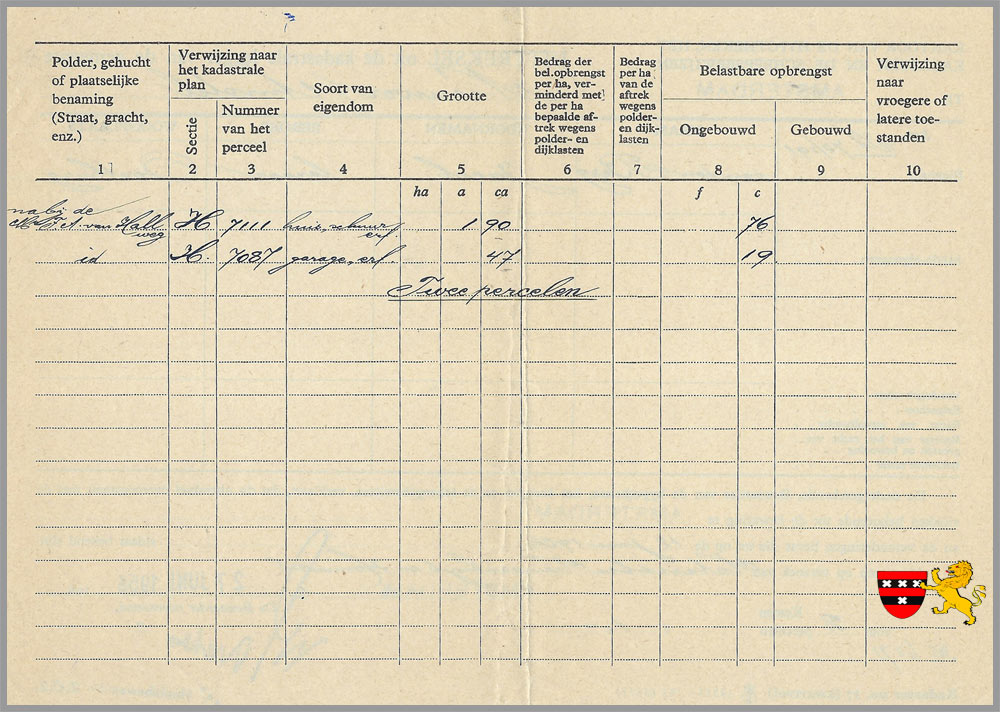 Polder, gehucht
of plaatselijke
benaming
(Straat, gracht,
enz.)
1
Verwijzing naar
het kadastrale
plan
Sectie
2
Nummer
van het
perceel
3
Soort van
eigendom
4
Grootte
5
Bedrag der
bel. opbrengst
per ha, ver-
minderd met
de per ha
bepaalde af-
trek wegens
polder- en
dijklasten
6
Bedrag
per ha
van de
aftrek
wegens
polder-
en dijk-
lasten
7
Belastbare opbrengst
Ongebouwd
8
Gebouwd
9
Verwijzing
naar
vroegere of
latere toe-
standen
10
ha a ca f c
nabij de
van Hall
weg
H 7111 huis, schuur
erf
1 90 76
id H. 7087 garage, erf. 47 19
Twee percelen